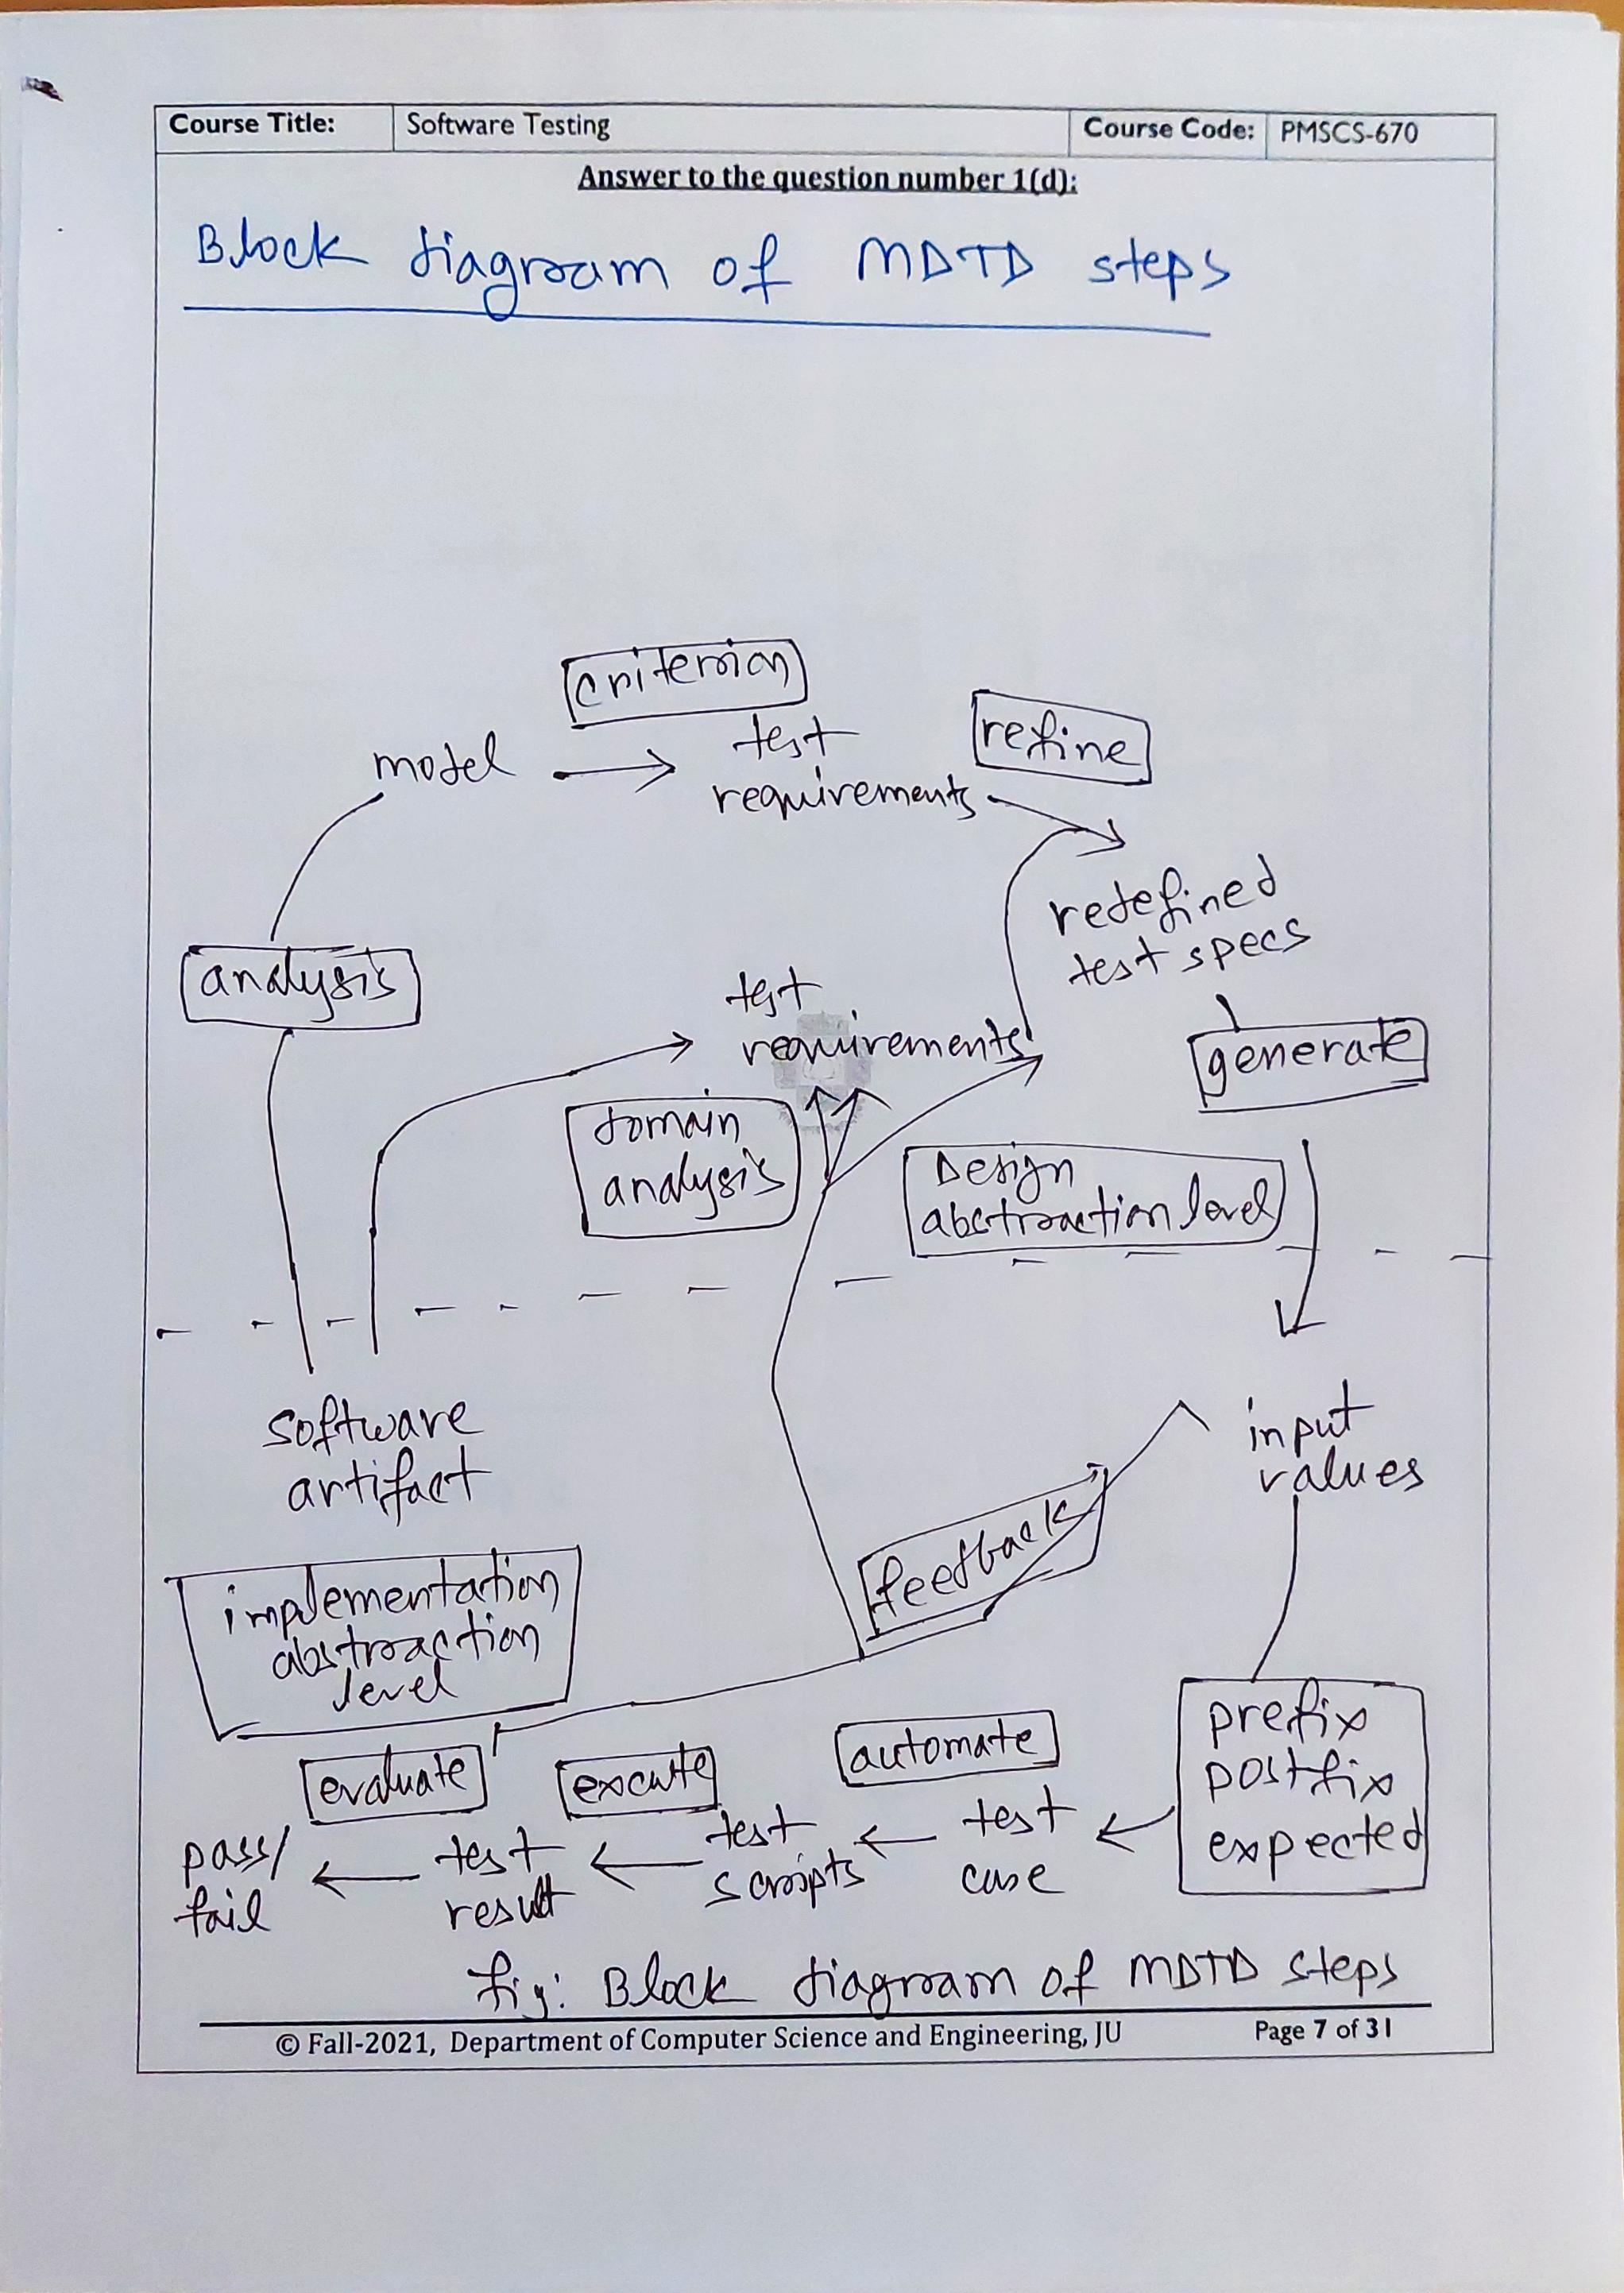 Course Title: Software Testing Course Code: PMSCS-670
Answer to the question number 1(d):
Block diagram of MDTD steps
criterion
model
test
requirements
refine
redefined
test specs
analysis
test
requirements
generate
domain
analysis
Design
abstraction level
software
artifact
input
values
feedback
implementation
abstraction
level
prefix
postfix
expected
evaluate
execute
automate
pass/
fail
test
result
test
scripts
test
case
fig: Block diagram of MDTD steps
© Fall-2021, Department of Computer Science and Engineering, JU Page 7 of 31